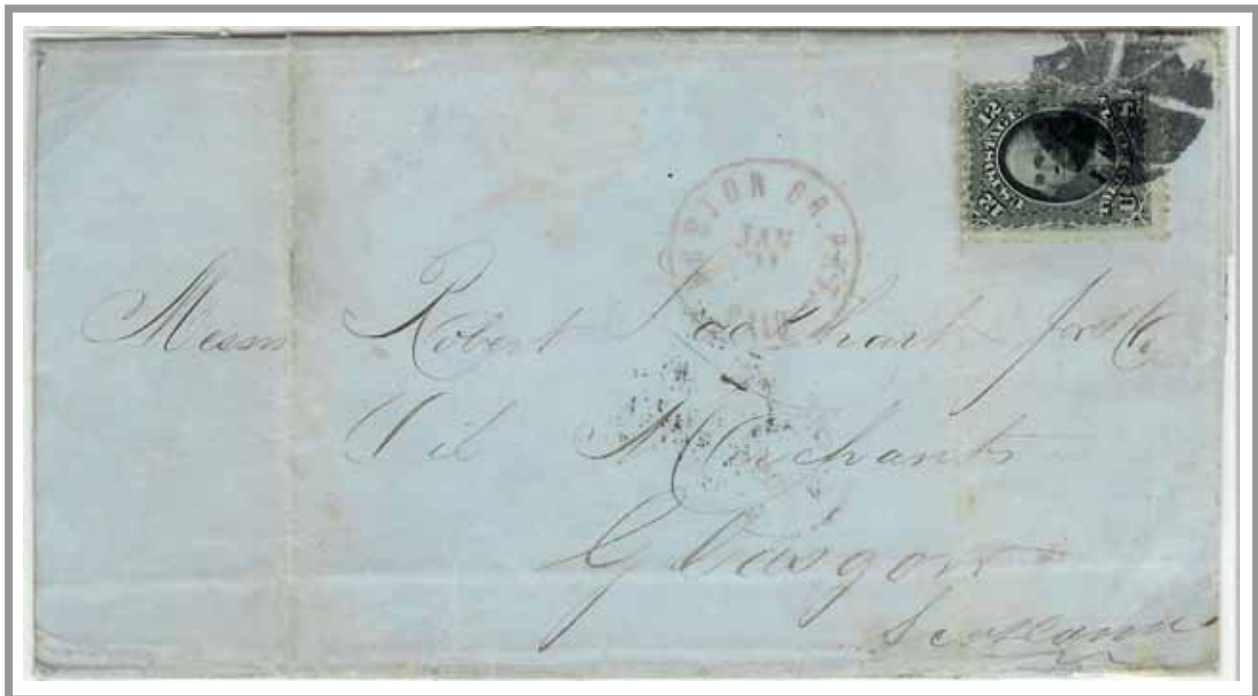 12 U.S. POSTAGE 12
BOSTON BR. PKT.
JAN
PAID
Messrs Robert Lockhart Jor & Co
Oil Merchants
Glasgow
Scotland